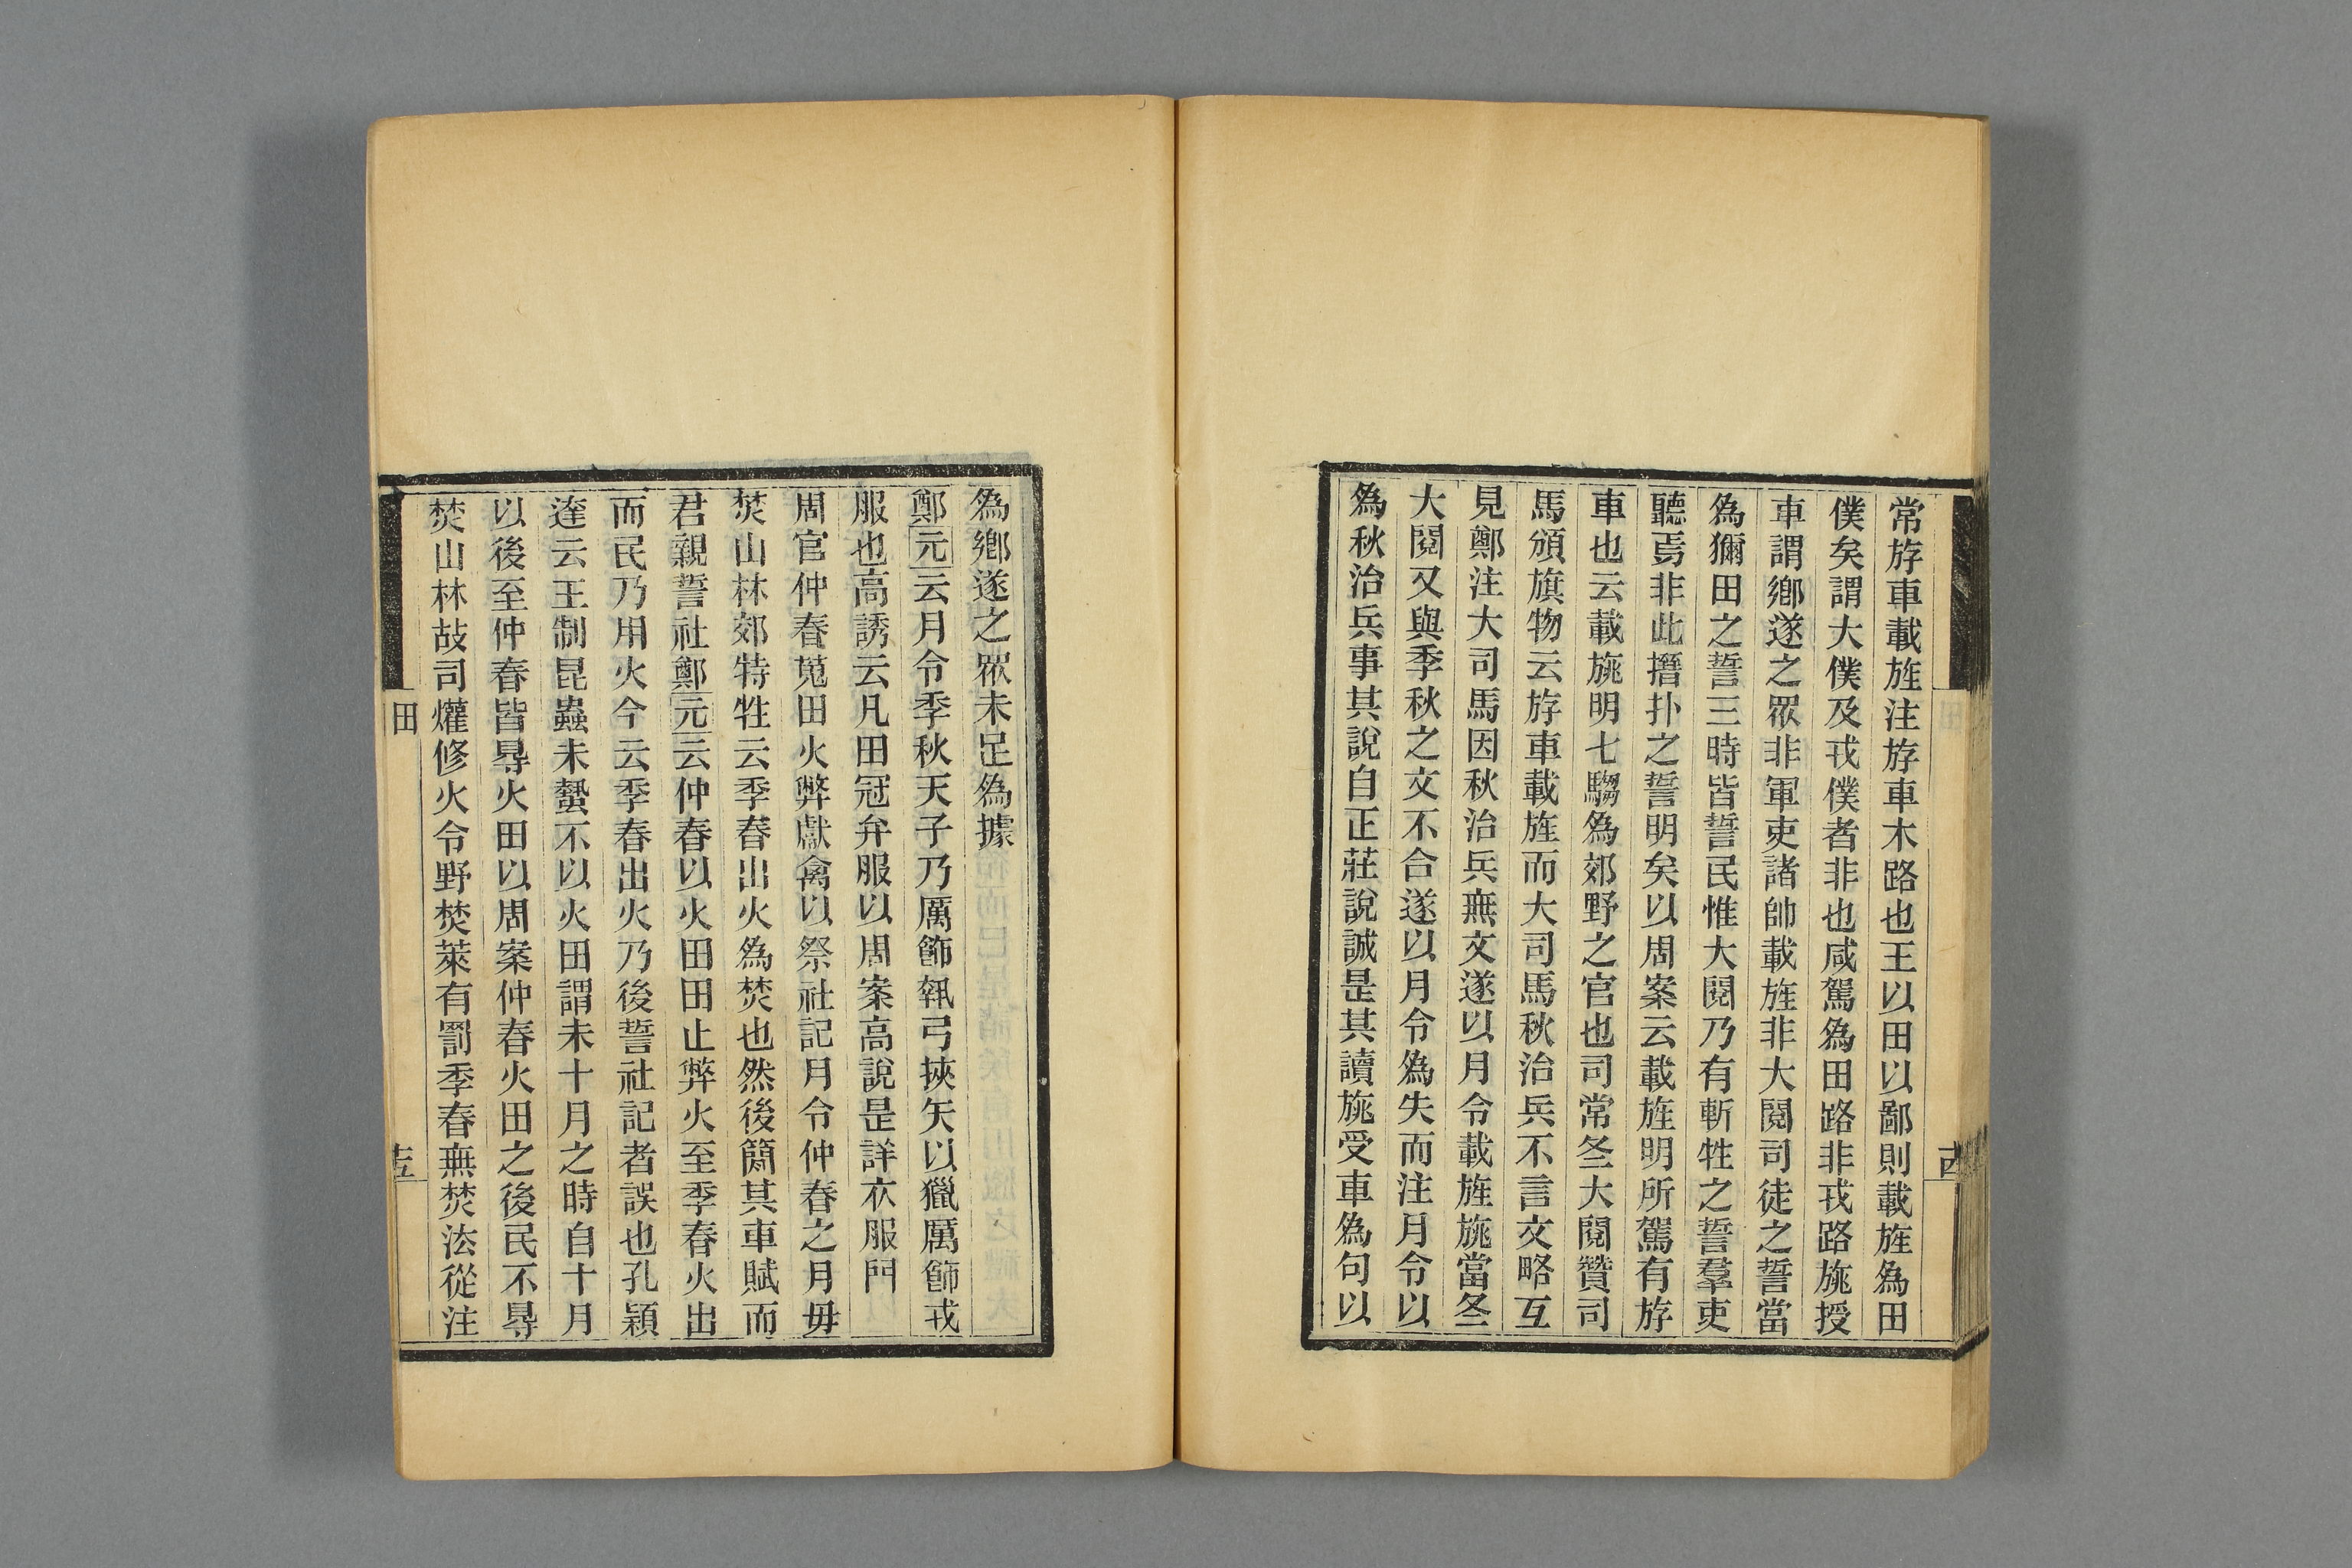 常斿車載旌注斿車木路也王以田以鄙則載旌為田
僕矣謂大僕及戎僕者非也咸駕為田路非戎路旐授
車謂鄕遂之眾非軍吏諸帥載旌非大閱司徒之誓當
為獮田之誓三時皆誓民惟大閱乃有斬牲之誓羣吏
聽焉非此搢扑之誓明矣以周案云載旌明所駕有斿
車也云載旐明七騶為郊野之官也司常冬大閱贊司
馬頒旗物云斿車載旌而大司馬秋治兵不言文略互
見鄭注大司馬因秋治兵無文遂以月令載旌旐當冬
大閱又與季秋之文不合遂以月令為失而注月令以
為秋治兵事其說自正莊說誠是其讀旐受車為句以
為鄕遂之眾未足為據
鄭元云月令季秋天子乃厲飾執弓挾矢以獵厲飾戎
服也高誘云凡田冠弁服以周案高說是詳衣服門
周官仲春蒐田火弊獻禽以祭社記月令仲春之月毋
焚山林郊特牲云季春出火為焚也然後簡其車賦而
君親誓社鄭元云仲春以火田田止弊火至季春火出
而民乃用火今云季春出火乃後誓社記者誤也孔穎
達云王制昆蟲未蟄不以火田謂未十月之時自十月
以後至仲春皆得火田以周案仲春火田之後民不得
焚山林故司爟修火令野焚萊有罰季春無焚法從注
田
十五